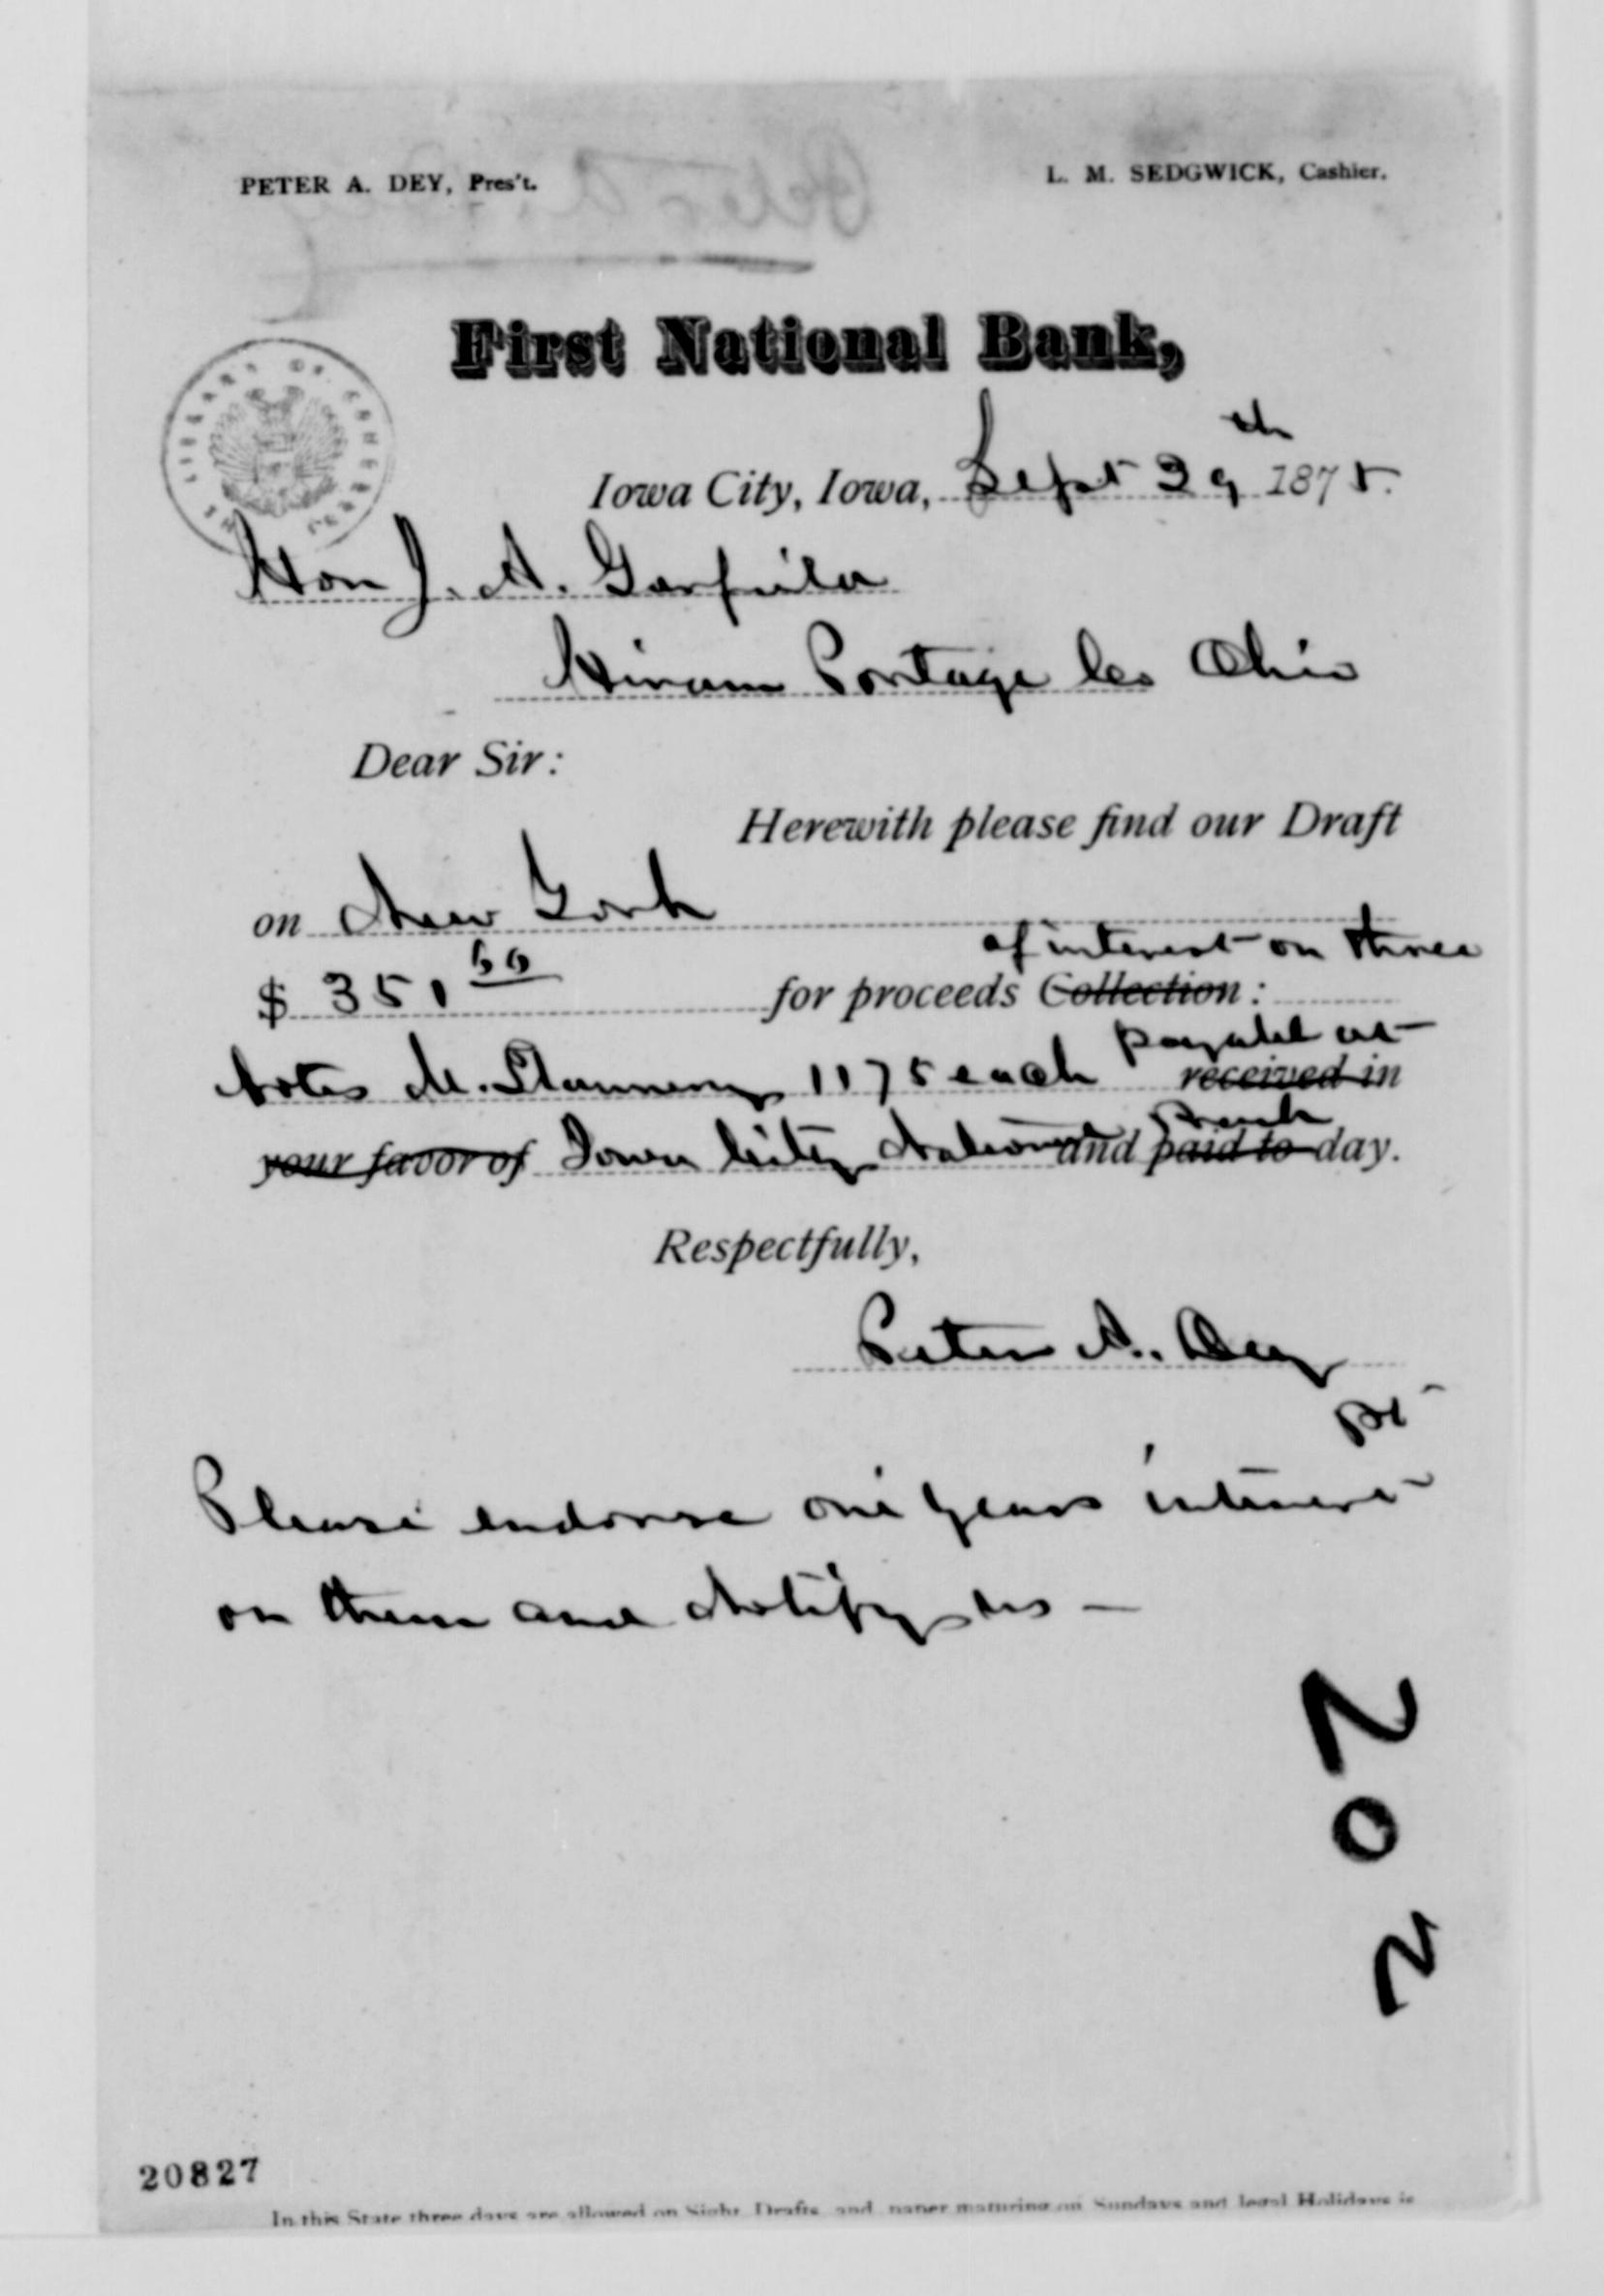 PETER A. DEY, Pres't.
L. M. SEDGWICK, Cashier.
First National Bank,
THE LIBRARY OF CONGRESS
Iowa City, Iowa, Sept 29th 1875.
Hon J. A. Garfield
Hiram Portage Co Ohio
Dear Sir:
Herewith please find our Draft
on New York
of interest on three
$ 351 60 for proceeds Collection:
payable at
Notes M. 1175 each received in
Bank
your favor of Iowa City National and paid to day.
Respectfully,
Peter A. Dey
Pt
Please endorse one years interest
on them and Notify us —
20827
In this State three days are allowed on Sight Drafts, and paper maturing on Sundays and legal Holidays is